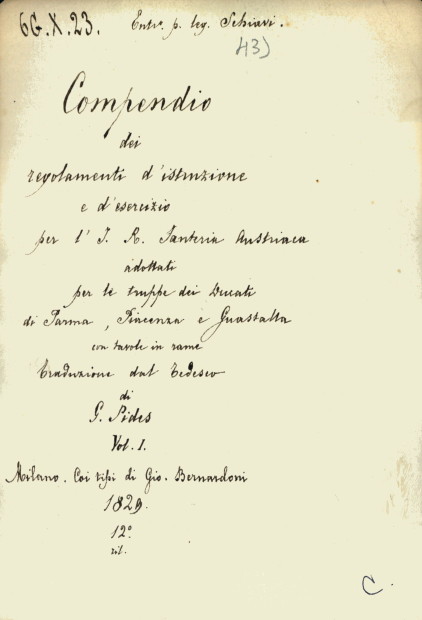 6G.X.23. Entr. p. leg. Schiavi.
43)
Compendio
dei
regolamenti d'istruzione
e d'esercizio
per l' I. R. Fanteria Austriaca
adottati
per le truppe dei Ducati
di Parma, Piacenza e Guastalla
con tavole in rame
Traduzione dal Tedesco
di
G. Pides
Vol. I.
Milano. Coi tipi di Gio. Bernardoni
1829.
12°
ril.
C.